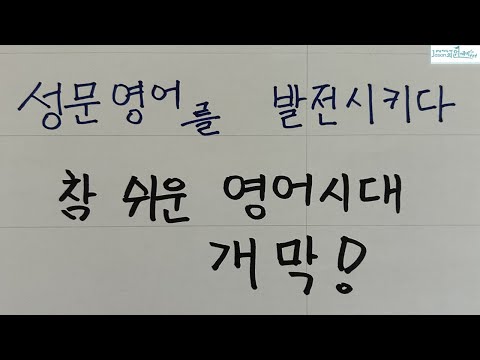 성문영어를 발전시키다
참 쉬운 영어시대
개막!